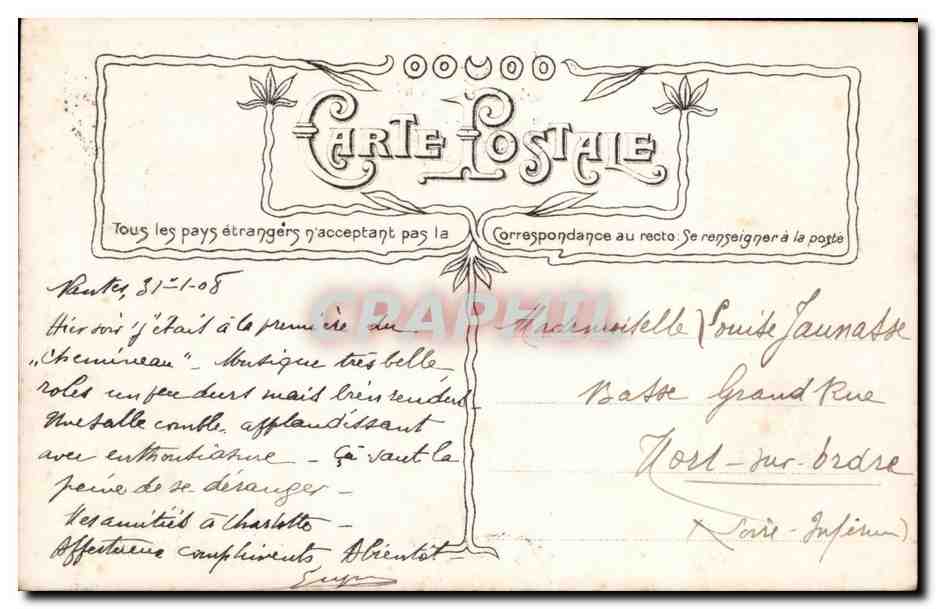 CARTE POSTALE
Tous les pays étrangers n'acceptant pas la Correspondance au recto: Se renseigner à la poste
CPAPHIL
Nantes, 31-1-08
Hier soir j'étais à la première du
"Chemineau" - Musique très belle -
roles un peu durs mais bien rendus -
Une salle comble, applaudissant
avec enthousiasme - Ça vaut la
peine de se déranger -
Mes amitiés à Charlotte -
Affectueux compliments A bientôt -
Mademoiselle Louise Jaunasse
Basse Grand Rue
Nort-sur-Erdre
(Loire-Inférieure)